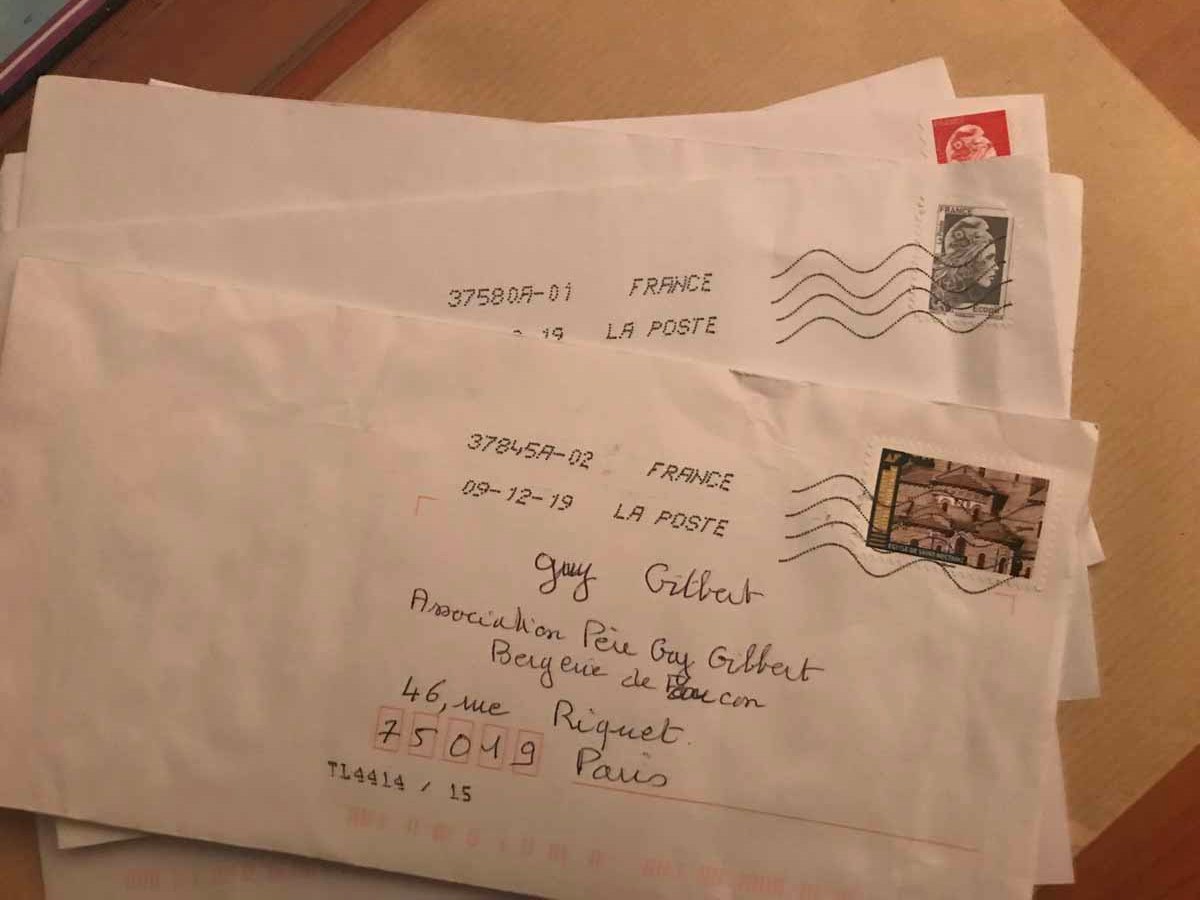 FRANCE
ÉCOPLI
37580A-01 FRANCE
19 LA POSTE
37845A-02 FRANCE
09-12-19 LA POSTE
Guy Gilbert
Association Père Guy Gilbert
Bergerie de Faucon
46, rue Riquet
75019 Paris
TL4414 / 15